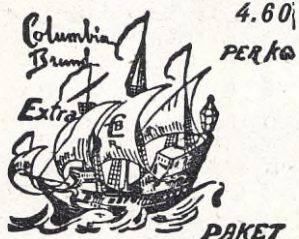 Columbia
Brand
Extra
4.60
PER KG
PAKET